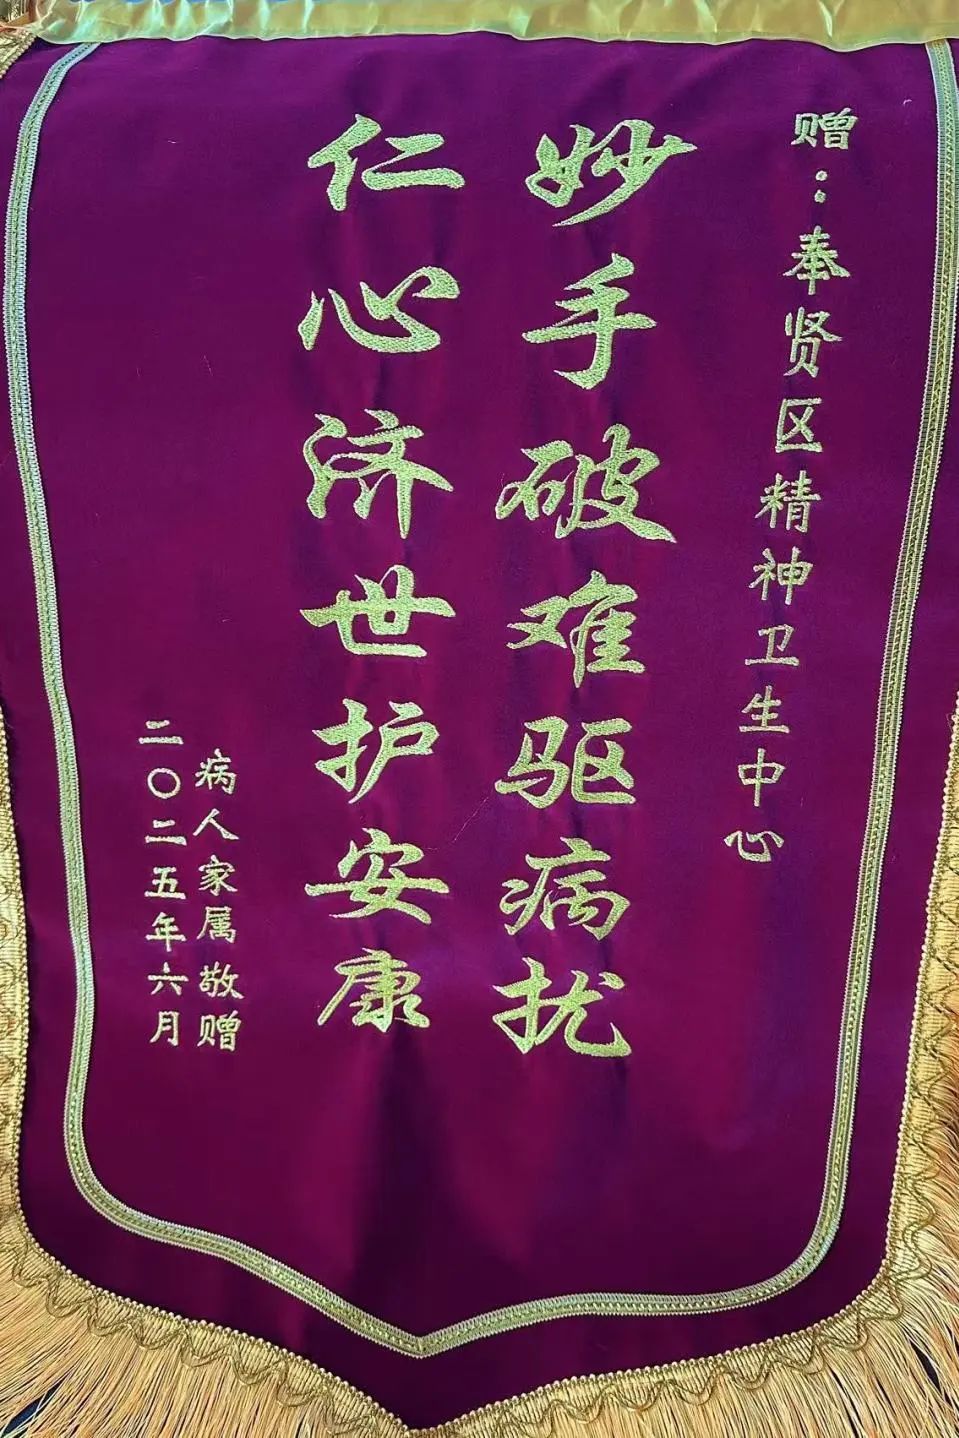 赠：奉贤区精神卫生中心
妙手破难驱病扰
仁心济世护安康
病人家属敬赠
二〇二五年六月